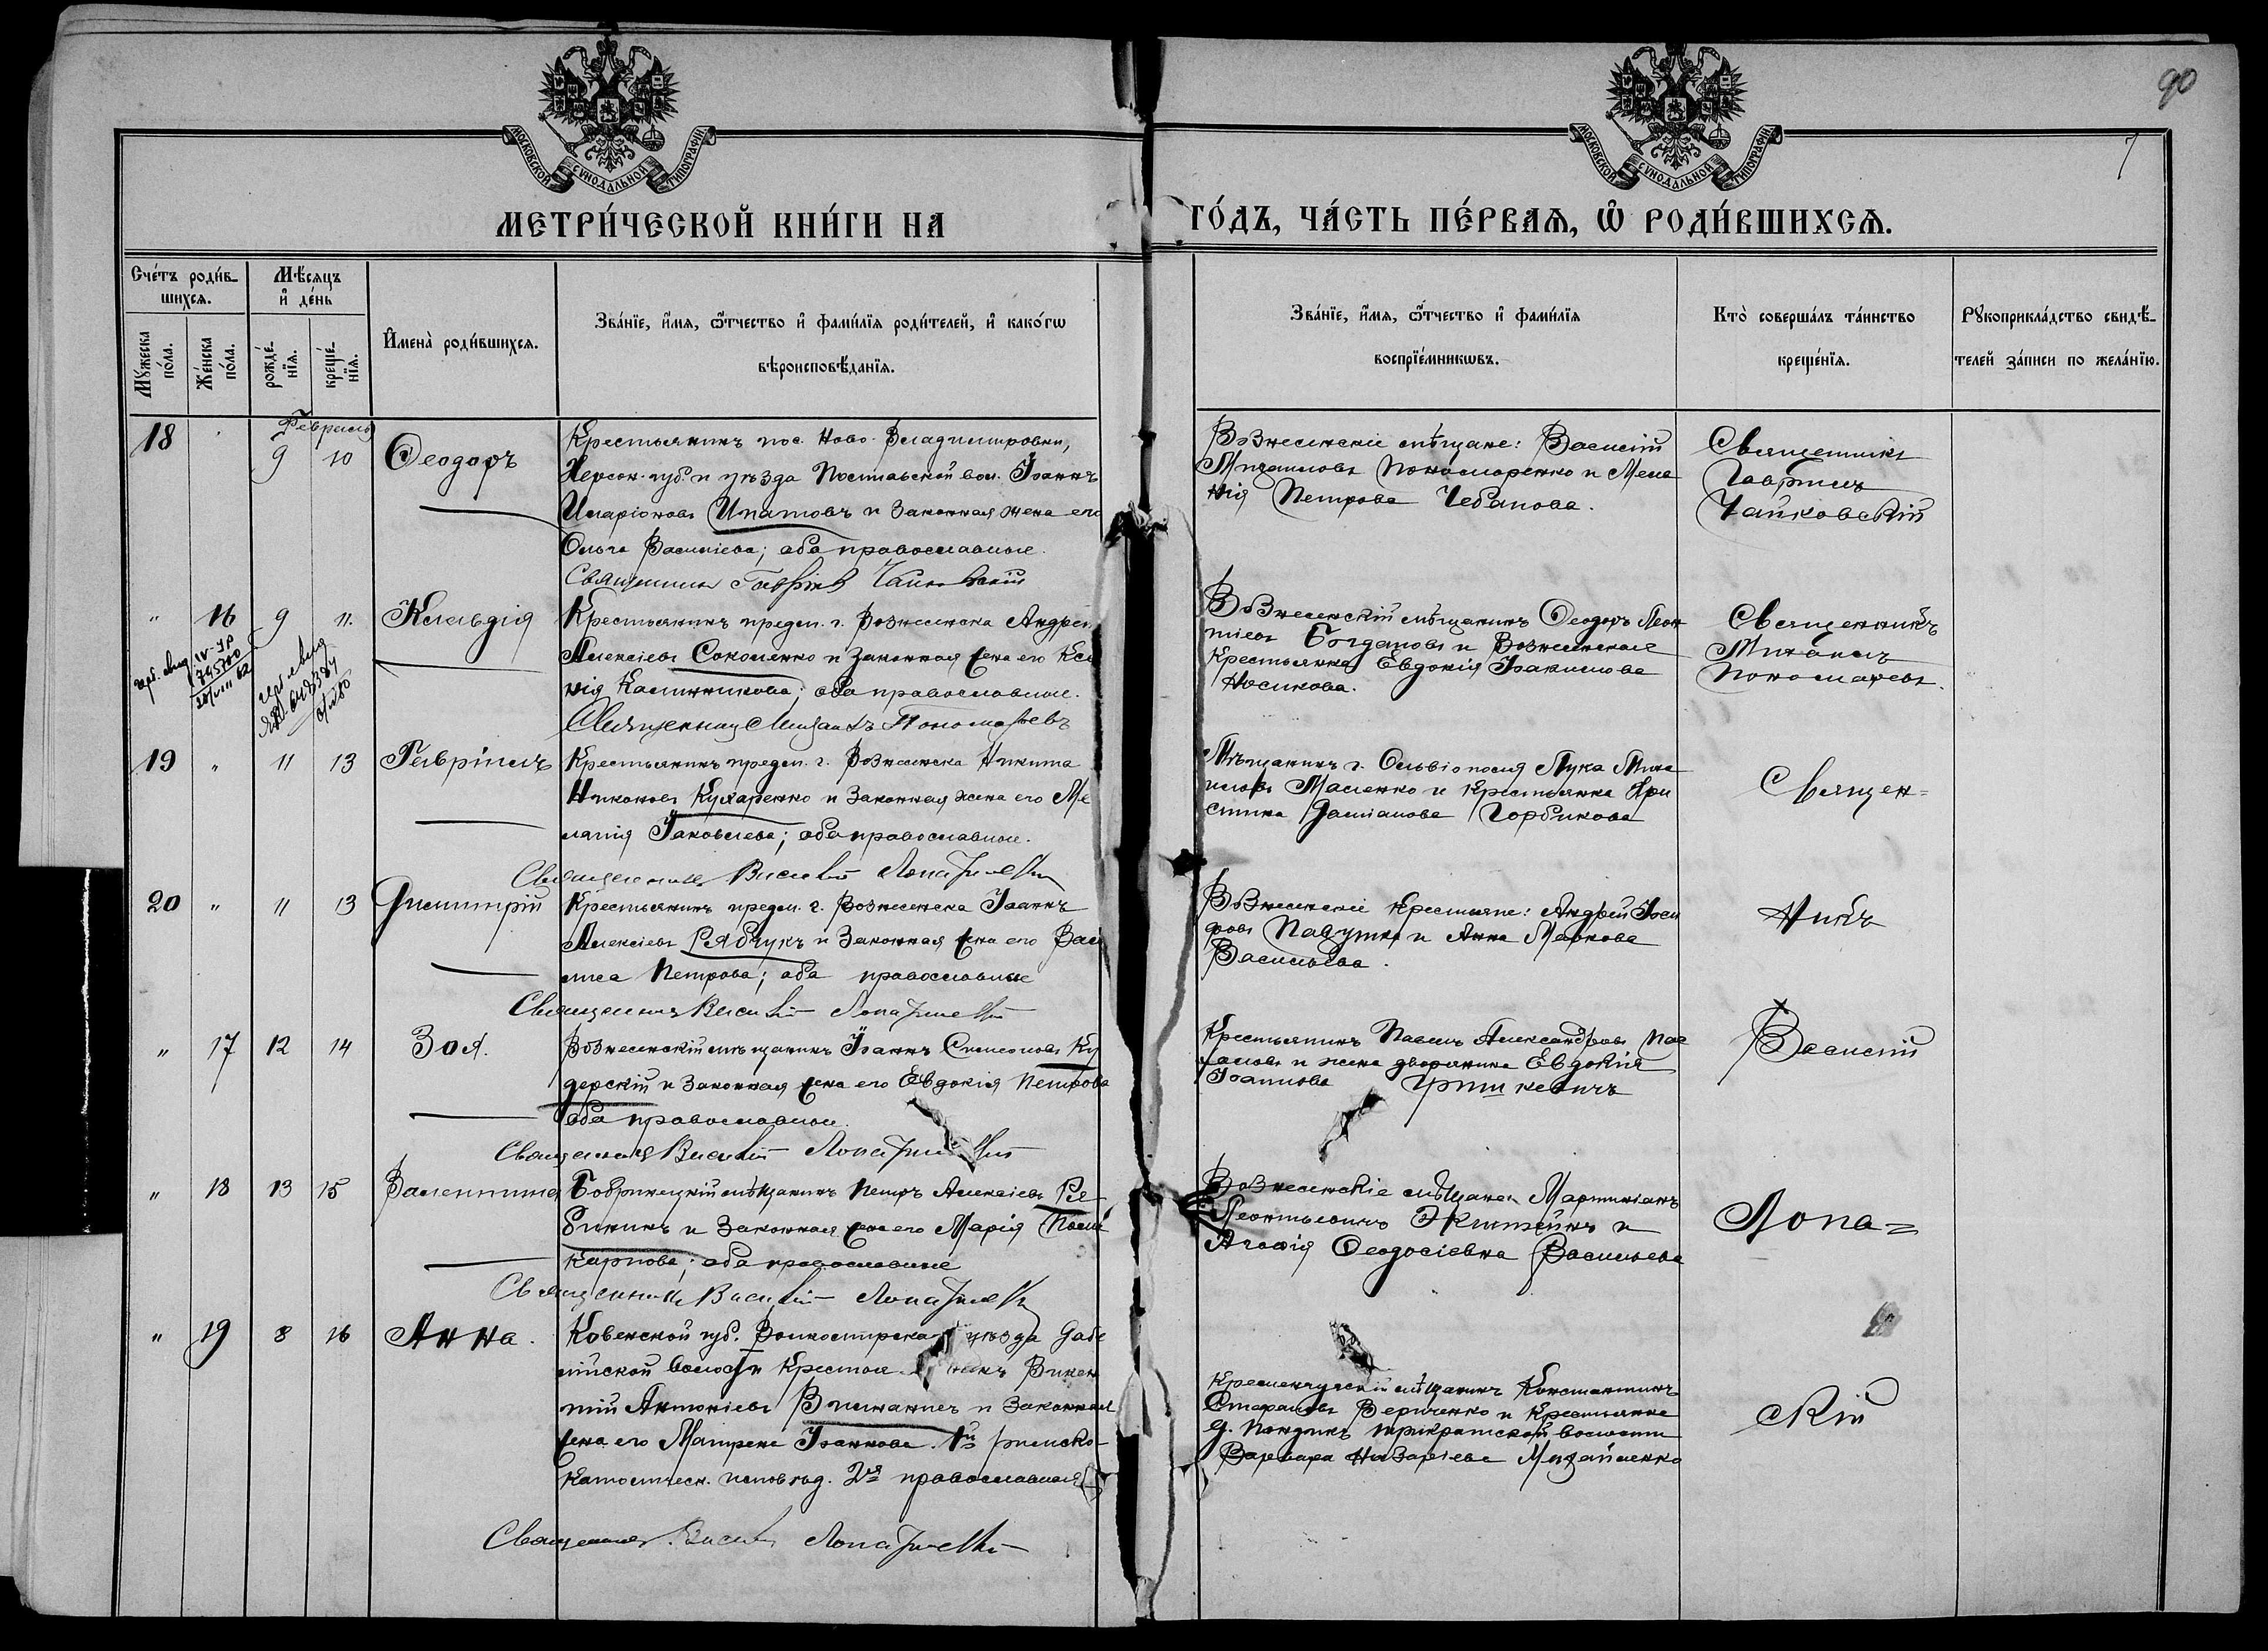 90
7
МОСКОВСКОЙ СѴНОДАЛЬНОЙ ТИПОГРАФІИ
МОСКОВСКОЙ СѴНОДАЛЬНОЙ ТИПОГРАФІИ
МЕТРИ́ЧЕСКОЙ КНИ́ГИ НА
ГО́ДЪ, ЧА́СТЬ ПЕ́РВАѦ, Ѽ РОДИ́ВШИХСѦ.
Сче́тъ роди́в-
шихсѧ.
Мѣ́сѧцъ
и҆ де́нь
Мꙋ́жеска
по́ла.
Же́нска
по́ла.
рожде́-
нїѧ.
креще́-
нїѧ.
И҆мена̀ роди́вшихсѧ.
Зва́нїе, и҆́мѧ, ѻ҆́тчество и҆ фами́лїѧ роди́телей, и҆ како́гѡ
вѣроисповѣ́данїѧ.
Зва́нїе, и҆́мѧ, ѻ҆́тчество и҆ фами́лїѧ
воспрїе́мникѡвъ.
Кто̀ соверша́лъ та́инство
креще́нїѧ.
Рꙋкоприкла́дство свидѣ́-
телей за́писи по жела́нїю.
Февраль
18 9 10 Ѳеодоръ
Крестьянинъ пос. Ново-Владимировки,
Херсон. губ. и уѣзда Полтавской вол. Іоаннъ
Иларіоновъ Ипатовъ и законная жена его
Ольга Василіева; оба православные.
Священникъ Гавріилъ Чайковскій
Вознесенскіе мѣщане: Василій
Михаиловъ Пономаренко и Мела
нія Петрова Чебанова.
Священникъ
Гавріилъ
Чайковскій
" 16 9 11. Клавдія
Крестьянинъ предм. г. Вознесенска Андрей
Алексіевъ Соколенко и законная жена его Ксе
нія Калинникова; оба православные.
Священникъ Михаилъ Пономаревъ
Вознесенскій мѣщанинъ Ѳеодоръ Леон
тіевъ Богдановъ и Вознесенская
Крестьянка Евдокія Іоакимова
Носикова.
Священникъ
Михаилъ
Пономаревъ.
19 " 11 13 Гавріилъ
Крестьянинъ предм. г. Вознесенска Никита
Никоновъ Кухаренко и законная жена его Ме
лапія Іаковлева; оба православные.
Священникъ Василій
Мѣщанинъ г. Ольвіополя Лука Миха
иловъ Масленко и крестьянка Хри
стина Даміанова Горбикова
Священ=
20 " 11 13 Димитрій
Крестьянинъ предм. г. Вознесенска Іоаннъ
Алексіевъ Рябчукъ и законная жена его Васи
лиса Петрова; оба православные
Священникъ Василій
Вознесенскіе Крестьяне: Андрей Іоси
фовъ Павутка и Анна Маркова
Васильева.
никъ
" 17 12 14 Зоя.
Вознесенскій мѣщанинъ Іоаннъ Симеоновъ Ку
дерскій и законная жена его Евдокія Петрова
оба православные.
Священникъ Василій
Крестьянинъ Павелъ Александровъ Пав
ловъ и жена дворянина Евдокія
Іоаннова Гришкевичъ
Василій
" 18 13 15 Валентина
Бобринецкій мѣщанинъ Петръ Алексіевъ Ря-
бининъ и законная жена его Марія Поли
карпова; оба православные
Священникъ Василій
Вознесенскіе мѣщане: Мартиніанъ
Леонтьевичъ и
Агафія Ѳеодосіевна Васильева
Лопа=
" 19 8 16 Анна.
Ковенской губ. уѣзда
волости Крестьянинъ Викен
тій Антоніевъ и законная
жена его Матрена Іоаннова. 1й римско-
католическ. исповѣд. 2ая православная
Священникъ Василій
Кременчугскій мѣщанинъ Константинъ
Стефановъ и Крестьянка
д. волости
Варвара Назаріева Михайленко
скій